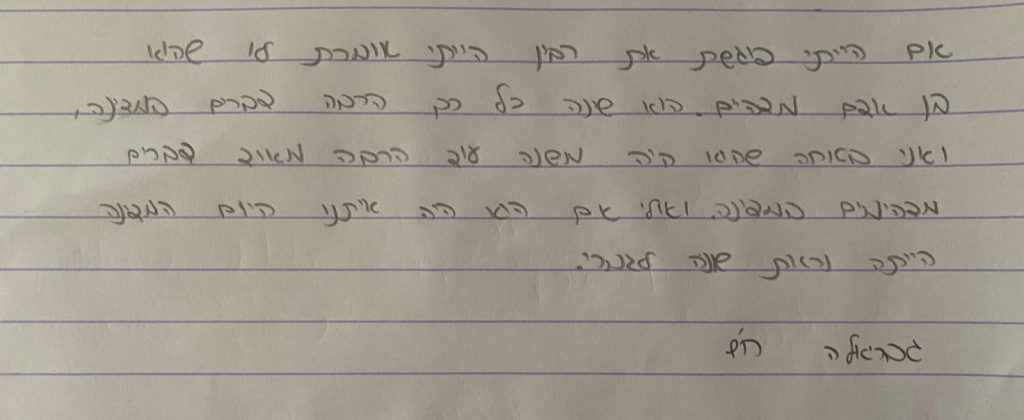 אם הייתי פוגשת את רבין הייתי אומרת לו שהוא
בן אדם מדהים. הוא שינה כל כך הרבה דברים במדינה,
ואני בטוחה שהוא היה משנה עוד הרבה מאוד דברים
מדהימים במדינה. ואולי אם הוא היה איתנו היום המדינה
הייתה נראת שונה לגמרי.
גבריאלה